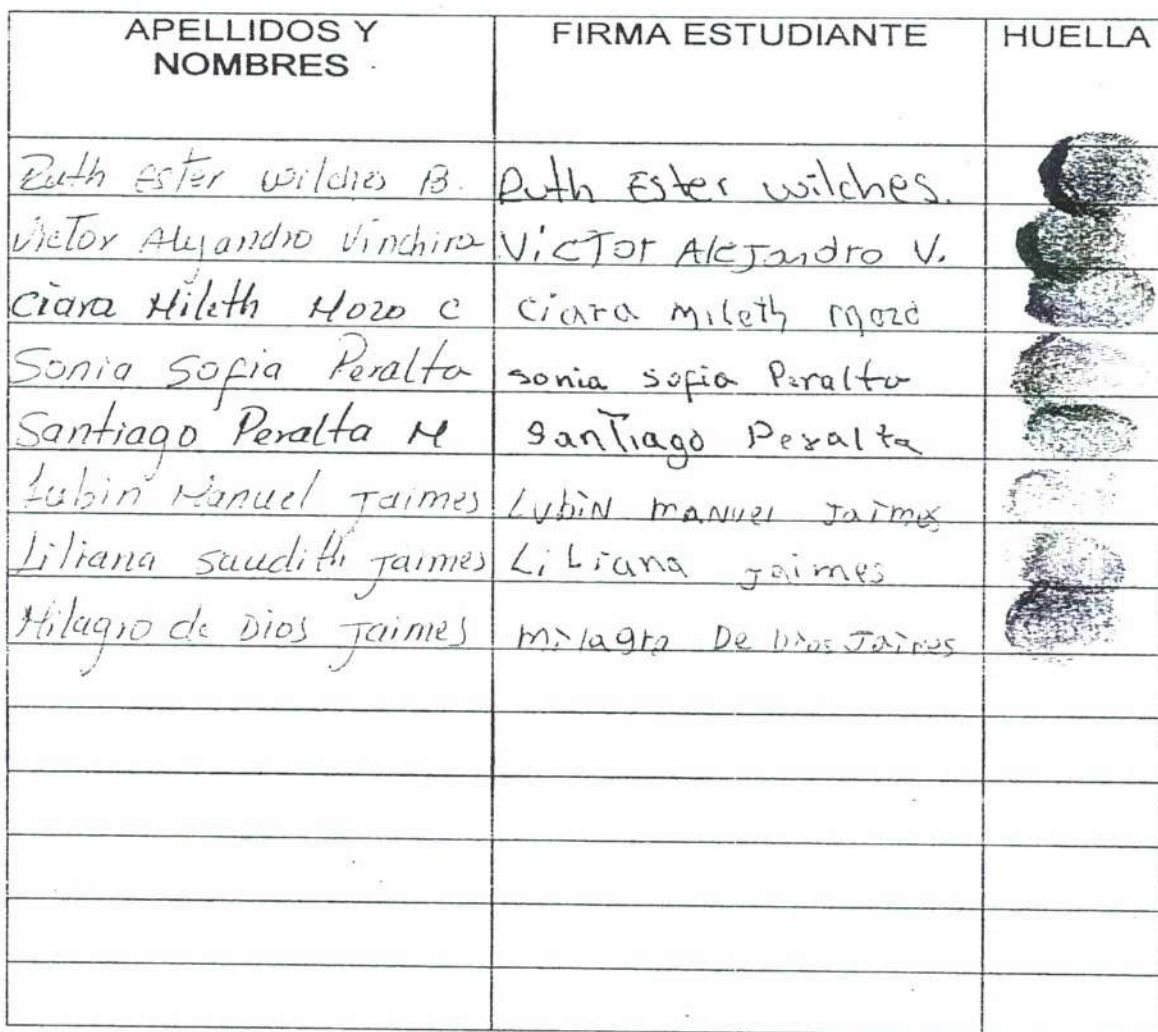 APELLIDOS Y NOMBRES FIRMA ESTUDIANTE HUELLA
Ruth Ester wilches B. Ruth Ester wilches.
Victor Alejandro Vinchira Victor Alejandro V.
Ciara Mileth Mozo C Ciara Mileth Mozo
Sonia Sofia Peralta sonia sofia Peralta
Santiago Peralta M Santiago Peralta
Lubin Manuel Jaimes Lubin manuel Jaimes
Liliana Saudith Jaimes Liliana Jaimes
Milagro de Dios Jaimes milagro De Dios Jaimes